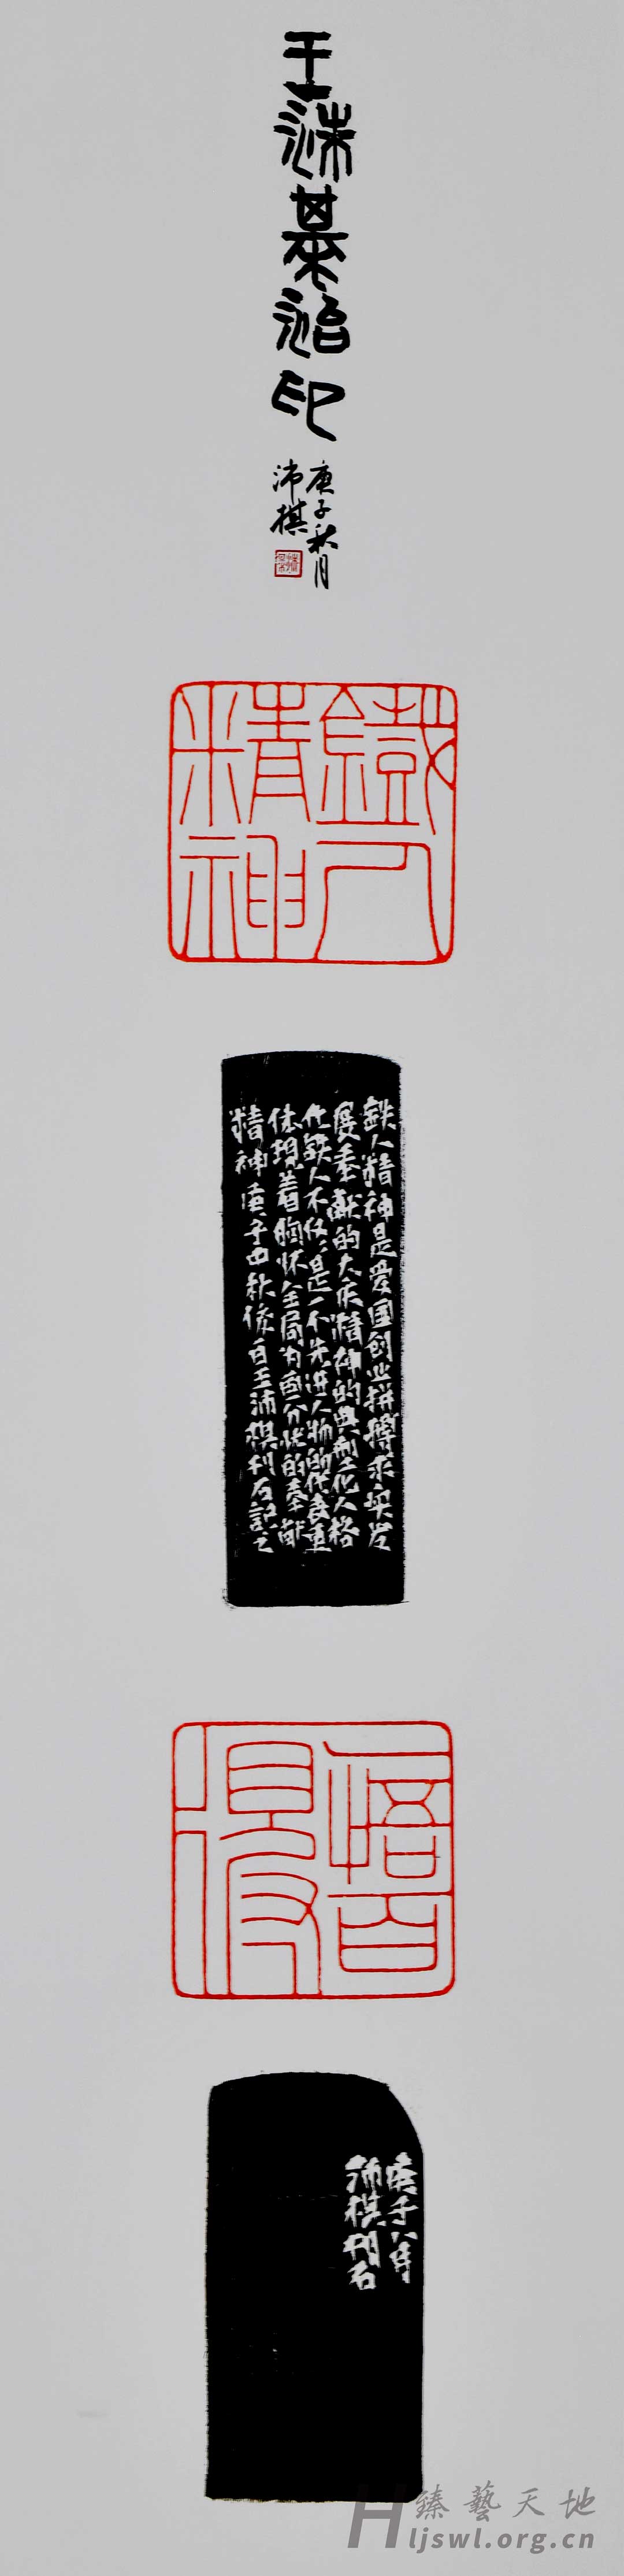 王沛棋治印
庚子秋月
沛棋
鐵人
精神
鉄人精神是爱国创业拼搏求实发
展奉献的大庆精神的典型化人格
化鉄人不仅仅是一个先进人物的代表更
体现着胸怀全局为国分忧的奉献
精神庚子中秋後百王沛棋刊石記之
庚子八月
沛棋刊石
臻藝天地
Hljswl.org.cn